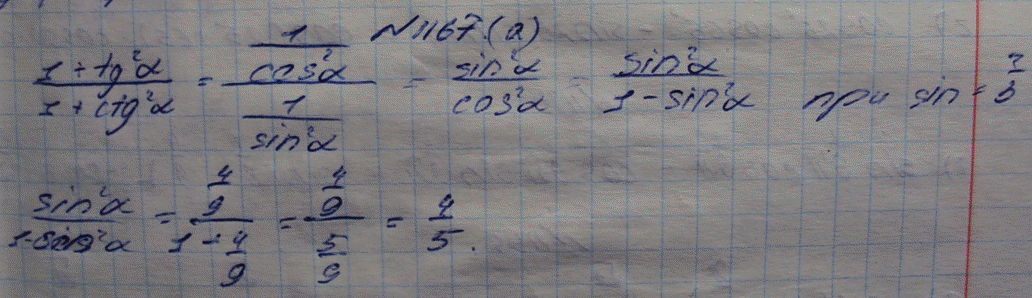 N 1167.(а)
(1 + tg²α)/(1 + ctg²α) = (1/cos²α)/(1/sin²α) = sin²α/cos²α = sin²α/(1 - sin²α) при sin = 2/3
sin²α/(1 - sin²α) = (4/9)/(1 - 4/9) = (4/9)/(5/9) = 4/5.